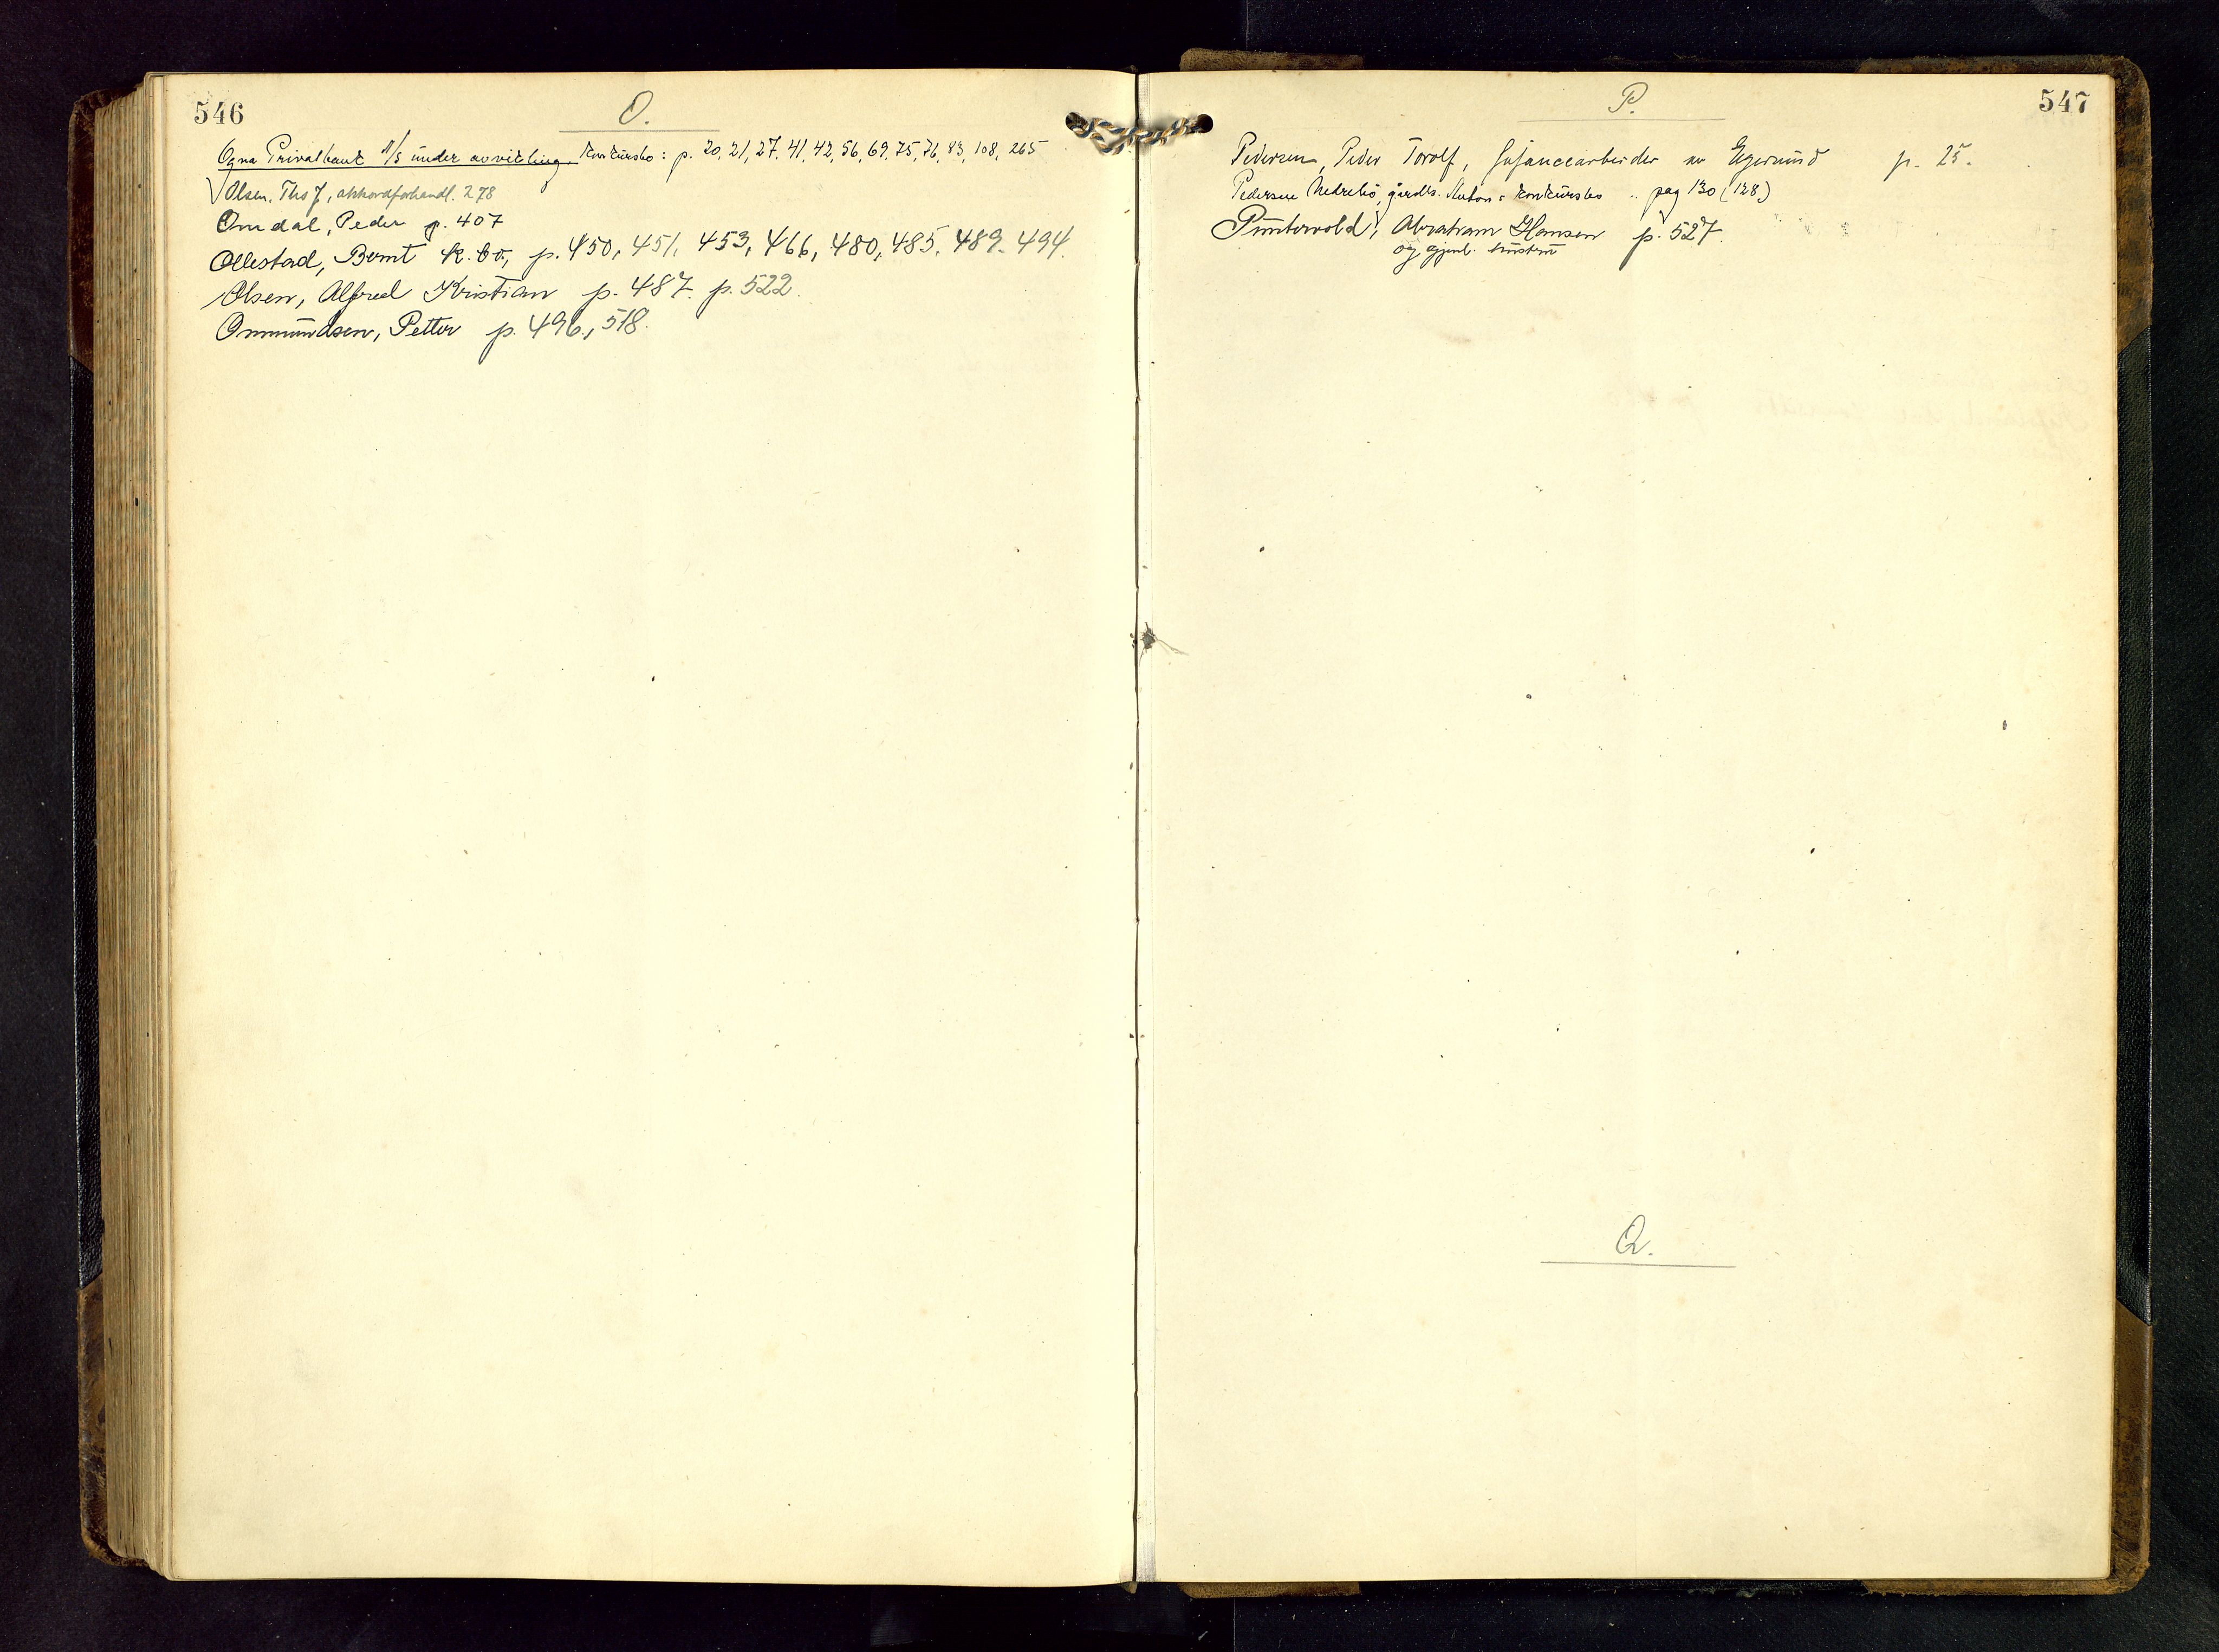 546
O.
Ogna Privatbank A/S under avvikling. Konkursbo: p. 20, 21, 27, 41, 42, 56, 69, 75, 76, 83, 108, 265
Olsen, Ths J, akkordforhandl. 278
Omdal, Peder p. 407
Ollestad, Bernt k. bo, p. 450, 451, 453, 466, 480, 485, 489, 494.
Olsen, Alfred Kristian p. 487. p. 522.
Ommundsen, Petter p. 496, 518.
547
P.
Pedersen, Peder Torolf, fajancearbeider av Egersund p. 25.
Pedersen Nedrebö, gårdbr. Anton: konkursbo .. pag 130 (128)
Puntervold, Abraham Hansen p. 527.
og gjenl. hustru
Q.